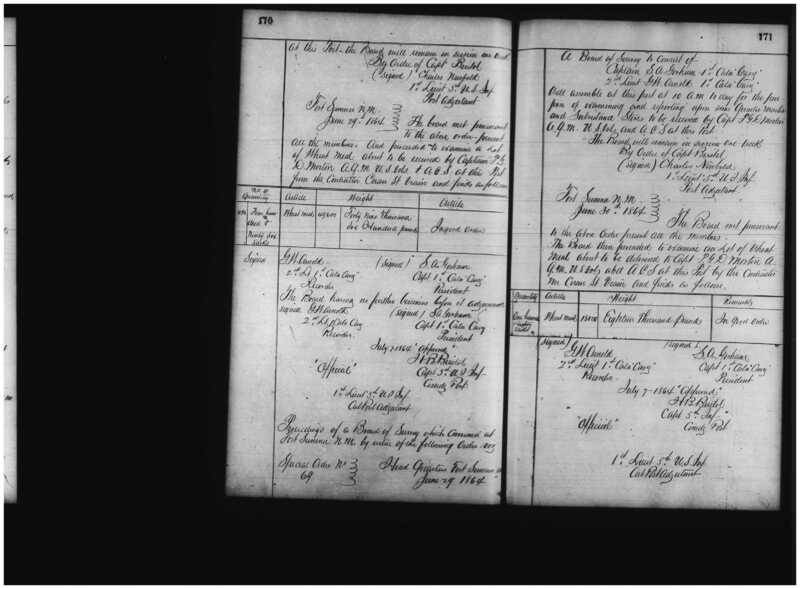 170
at this Post - the Board will remain in session one week
By Order of Capt Bristol
(signed) Charles Newbold
1st Lieut 5th U.S. Inf
Post Adjutant
Fort Sumner N.M.
June 29th 1864
The board met pursuant
to the above order present
all the members. And proceeded to examine a Lot
of Wheat Meal about to be received by Captain P. &
D Morton A.Q.M. U.S. Vols & A.C.S. at this Post
from the Contractor Ceran St Vrain and finds as follows
Quantity Article Weight Article
Wheat Meal Forty nine thousand In good order
Six hundred pounds
Ninety Six
Sacks
Signed
G W Arnold (Signed) S. A. Gorham
2nd Lt 1st Cala Cavy Capt 1st Cala Cavy
Recorder President
The Board having no further business before it adjourned
signed G W Arnold (signed) S A Gorham
2nd Lt 1 Cala Cavy Capt 1st Cala Cavy
Recorder President
July 7 1864 "Approved"
H. B. Bristol
"Official" Capt 5th U.S. Inf
Comdg Post
1st Lieut 5th U.S. Inf
Post Adjutant
Proceedings of a Board of Survey which convened at
Fort Sumner N.M. by virtue of the following Order viz
Special Order No Head Quarters Fort Sumner
69 June 29 1864
171
A Board of Survey to consist of
Captain S. A. Gorham 1st Cala Cavy
2nd Lieut G W Arnold 1st Cala Cavy
Will assemble at this post at 10 A.M. to day for the pur
pose of examining and reporting upon some Quarter master
and Subsistence Stores to be received by Capt P & D Morton
A.Q.M. U.S. Vols and A C S at this Post
The Board will remain in session one week
By Order of Capt Bristol
(signed) Charles Newbold
1st Lieut 5th U.S. Inf
Post Adjutant
Fort Sumner N.M.
June 30th 1864
The Board met pursuant
to the above Order present all the members.
The Board then proceeded to examine a Lot of Wheat
Meal about to be delivered to Capt P. & D Morton A.
Q.M. U.S. Vols and A C S at this Post by the Contractor
Mr Ceran St Vrain and finds as follows.
Quantity Article Weight Remarks
One hundred Wheat Meal 18000 Eighteen Thousand Pounds In Good Order
(signed) (signed)
G W Arnold S. A. Gorham
2nd Lieut 1st Cala Cavy Capt 1st Cala Cavy
Recorder President
July 7 - 1864 "Approved"
H B Bristol
"Official" Capt 5th Inf
Comdg Post
1st Lieut 5th U.S. Inf
Post Adjutant